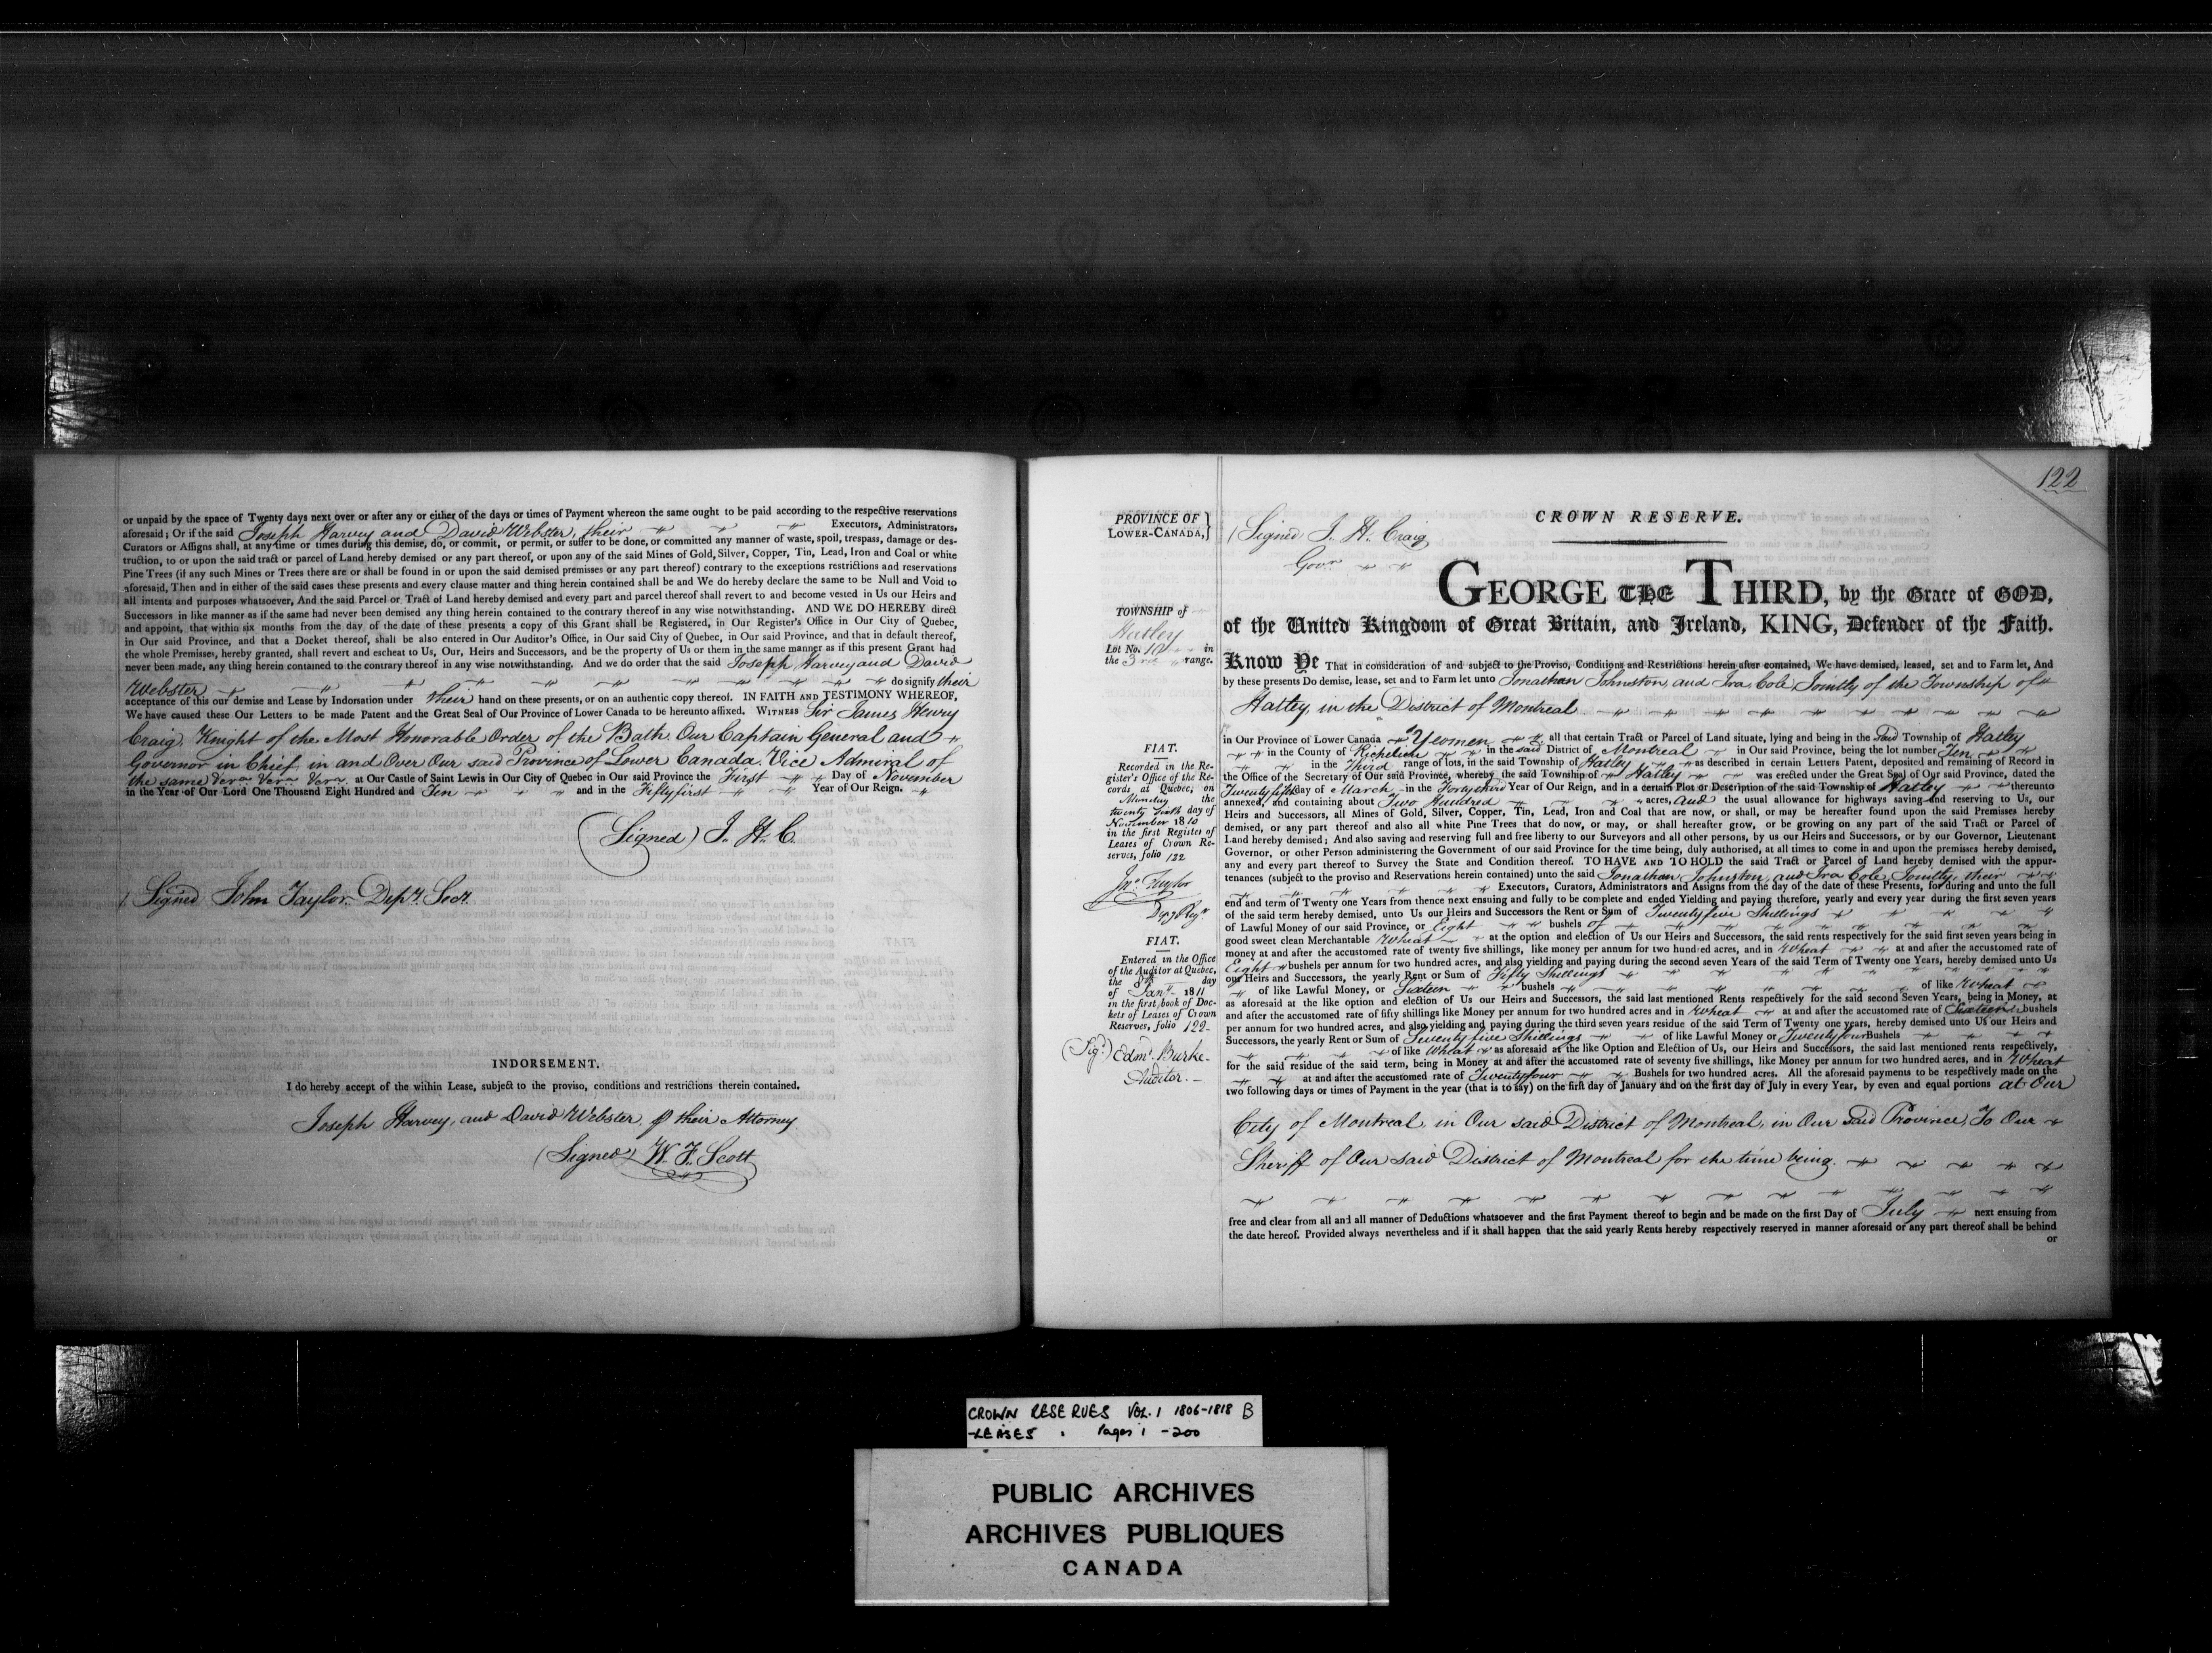 or unpaid by the space of Twenty days next over or after any or either of the days or times of Payment whereon the same ought to be paid according to the respective reservations
aforesaid; Or if the said Joseph Harvey and David Webster, their Executors, Administrators,
Curators or Assigns shall, at any time or times during this demise, do, or commit, or permit, or suffer to be done, or committed any manner of waste, spoil, trespass, damage or des-
truction, to or upon the said tract or parcel of Land hereby demised or any part thereof, or upon any of the said Mines of Gold, Silver, Copper, Tin, Lead, Iron and Coal or white
Pine Trees (if any such Mines or Trees there are or shall be found in or upon the said demised premises or any part thereof) contrary to the exceptions restrictions and reservations
aforesaid, Then and in either of the said cases these presents and every clause matter and thing herein contained shall be and We do hereby declare the same to be Null and Void to
all intents and purposes whatsoever, And the said Parcel or Tract of Land hereby demised and every part and parcel thereof shall revert to and become vested in Us our Heirs and
Successors in like manner as if the same had never been demised any thing herein contained to the contrary thereof in any wise notwithstanding. AND WE DO HEREBY direct
and appoint, that within six months from the day of the date of these presents a copy of this Grant shall be Registered, in Our Register's Office in Our City of Quebec,
in Our said Province, and that a Docket thereof, shall be also entered in Our Auditor's Office, in Our said City of Quebec, in Our said Province, and that in default thereof,
the whole Premises, hereby granted, shall revert and escheat to Us, Our, Heirs and Successors, and be the property of Us or them in the same manner as if this present Grant had
never been made, any thing herein contained to the contrary thereof in any wise notwithstanding. And we do order that the said Joseph Harvey and David
Webster do signify their
acceptance of this our demise and Lease by Indorsation under their hand on these presents, or on an authentic copy thereof. IN FAITH AND TESTIMONY WHEREOF,
We have caused these Our Letters to be made Patent and the Great Seal of Our Province of Lower Canada to be hereunto affixed. WITNESS Sir James Henry
Craig, Knight of the Most Honorable Order of the Bath. Our Captain General and
Governor in Chief, in and Over Our said Province of Lower Canada. Vice Admiral of
the same Vera Vera Vera at Our Castle of Saint Lewis in Our City of Quebec in Our said Province the First Day of November
in the Year of Our Lord One Thousand Eight Hundred and Ten and in the Fiftyfirst Year of Our Reign.
(Signed) J. H. C.
(Signed John Taylor. Depy. Secy.
INDORSEMENT.
I do hereby accept of the within Lease, subject to the proviso, conditions and restrictions therein contained.
Joseph Harvey, and David Webster, their Attorney
(Signed) W. F. Scott
122
PROVINCE OF
LOWER-CANADA,}
(Signed J. H. Craig
Govr
CROWN RESERVE.
GEORGE THE THIRD, by the Grace of GOD,
of the United Kingdom of Great Britain, and Ireland, KING, Defender of the Faith.
TOWNSHIP of
Hatley
Lot No. 10 in
the 3rd range.
Know Ye That in consideration of and subject to the Proviso, Conditions and Restrictions herein after contained, We have demised, leased, set and to Farm let, And
by these presents Do demise, lease, set and to Farm let unto Jonathan Johnston, and Ira Cole, Jointly of the Township of
Hatley, in the District of Montreal
in Our Province of Lower Canada Yeomen all that certain Tract or Parcel of Land situate, lying and being in the Said Township of Hatley
in the County of Richelieu in the said District of Montreal in Our said Province, being the lot number Ten
in the Third range of lots, in the said Township of Hatley as described in certain Letters Patent, deposited and remaining of Record in
the Office of the Secretary of Our said Province, whereby the said Township of Hatley was erected under the Great Seal of Our said Province, dated the
Twentyfifth day of March in the Fortythird Year of Our Reign, and in a certain Plot or Description of the said Township of Hatley thereunto
annexed, and containing about Two Hundred acres, and the usual allowance for highways saving and reserving to Us, our
Heirs and Successors, all Mines of Gold, Silver, Copper, Tin, Lead, Iron and Coal that are now, or shall, or may be hereafter found upon the said Premises hereby
demised, or any part thereof and also all white Pine Trees that do now, or may, or shall hereafter grow, or be growing on any part of the said Tract or Parcel of
Land hereby demised; And also saving and reserving full and free liberty to our Surveyors and all other persons, by us our Heirs and Successors, or by our Governor, Lieutenant
Governor, or other Person administering the Government of our said Province for the time being, duly authorised, at all times to come in and upon the premises hereby demised,
any and every part thereof to Survey the State and Condition thereof. TO HAVE AND TO HOLD the said Tract or Parcel of Land hereby demised with the appur-
tenances (subject to the proviso and Reservations herein contained) unto the said Jonathan Johnston, and Ira Cole, Jointly, their
Executors, Curators, Administrators and Assigns from the day of the date of these Presents, for during and unto the full
end and term of Twenty one Years from thence next ensuing and fully to be complete and ended Yielding and paying therefore, yearly and every year during the first seven years
of the said term hereby demised, unto Us our Heirs and Successors the Rent or Sum of Twentyfive Shillings
of Lawful Money of our said Province, or Eight bushels of
good sweet clean Merchantable Wheat at the option and election of Us our Heirs and Successors, the said rents respectively for the said first seven years being in
money at and after the accustomed rate of twenty five shillings, like money per annum for two hundred acres, and in Wheat at and after the accustomed rate of
Eight bushels per annum for two hundred acres, and also yielding and paying during the second seven Years of the said Term of Twenty one Years, hereby demised unto Us
our Heirs and Successors, the yearly Rent or Sum of Fifty Shillings
of like Lawful Money, or Sixteen bushels of like Wheat
as aforesaid at the like option and election of Us our Heirs and Successors, the said last mentioned Rents respectively for the said second Seven Years, being in Money, at
and after the accustomed rate of fifty shillings like Money per annum for two hundred acres and in Wheat at and after the accustomed rate of Sixteen bushels
per annum for two hundred acres, and also yielding and paying during the third seven years residue of the said Term of Twenty one years, hereby demised unto Us our Heirs and
Successors, the yearly Rent or Sum of Seventy five Shillings of like Lawful Money or Twentyfour Bushels
of like Wheat as aforesaid at the like Option and Election of Us, our Heirs and Successors, the said last mentioned rents respectively,
for the said residue of the said term, being in Money at and after the accustomed rate of seventy five shillings, like Money per annum for two hundred acres, and in Wheat
at and after the accustomed rate of Twentyfour Bushels for two hundred acres. All the aforesaid payments to be respectively made on the
two following days or times of Payment in the year (that is to say) on the first day of January and on the first day of July in every Year, by even and equal portions at Our
City of Montreal, in Our said District of Montreal, in Our Said Province, To Our
Sheriff of Our said District of Montreal for the time being.
free and clear from all and all manner of Deductions whatsoever and the first Payment thereof to begin and be made on the first Day of July next ensuing from
the date hereof. Provided always nevertheless and if it shall happen that the said yearly Rents hereby respectively reserved in manner aforesaid or any part thereof shall be behind
or
FIAT.
Recorded in the Re-
gister's Office of the Re-
cords at Quebec, on
Monday the
twenty Sixth day of
November 1810
in the first Register of
Leases of Crown Re-
serves, folio 122
Jno. Taylor
Depy Regr
FIAT.
Entered in the Office
of the Auditor at Quebec,
the 8th day
of Jany. 1811
in the first book of Doc-
kets of Leases of Crown
Reserves, folio 122
(Sigd.) Edmd. Burke
Auditor.
CROWN RESERVES VOL. 1 1806-1818 B
-LEASES . Pages 1 - 200
PUBLIC ARCHIVES
ARCHIVES PUBLIQUES
CANADA